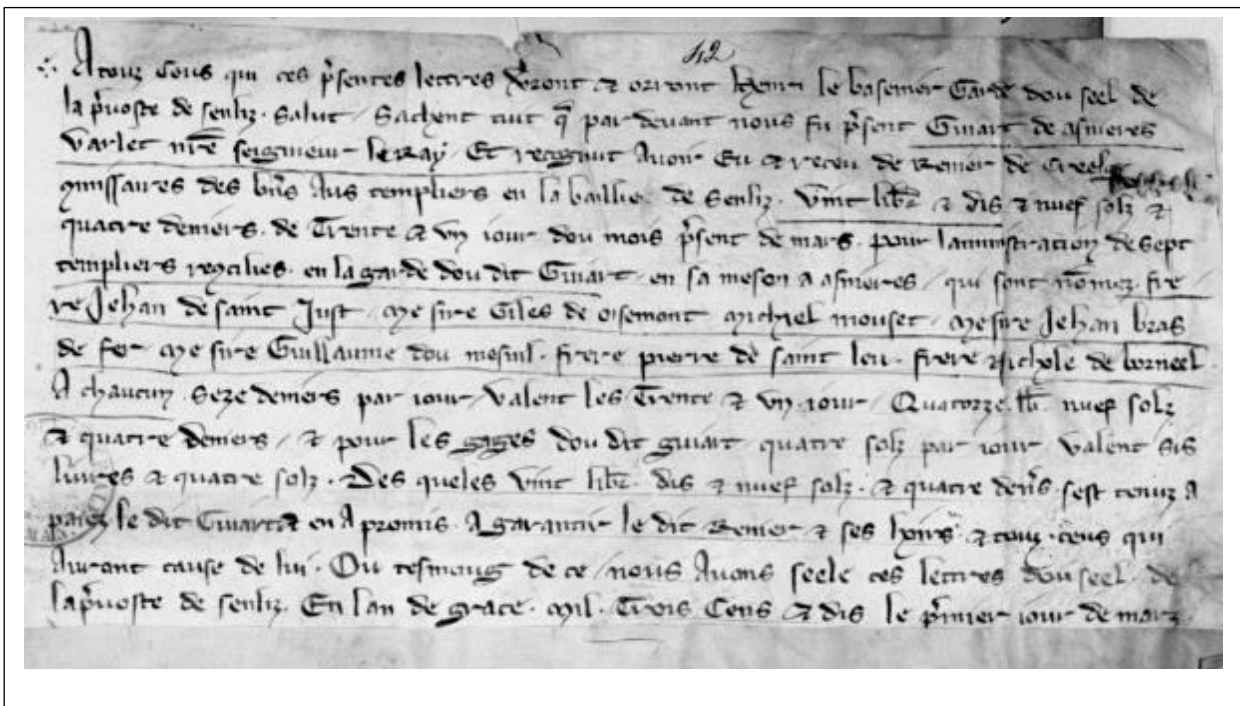 42
A touz ceus qui ces p̃sentes lettres v̾ront ⁊ orront henri le basennier Garde dou seel de
la p̃uoste de senliz . Salut / Sachent tuit q̃ par deuant nous fu p̃sent Guiart de asnieres
varlet nr̃e seigneur le Ray / Et recognut Auoir Eu ⁊ receu de Renier de Creel
9missaires des bñs Aus templiers en la baillie de Senliz . Vint libr̃ ⁊ dis ⁊ nuef solz ⁊
quatre deniers . de Trente ⁊ vn iour dou mois p̃sent de mars . pour lamnistracion de sept
templiers recilies . en la garde dou dit Guiart . en sa meson a asnieres / qui sont nõmez . fre /
re Jehan de saint Just / Me sire Giles de oisemont Michiel mouset / Me sire Jehan bras
de fer / Me sire Guillaume dou mesnil . frere pierre de saint leu . frere Nichole de borneel .
A chaucun . Seze deniers par iour / valent les Trente ⁊ vn . iour / Quatorze . llb̃ . nuef solz
⁊ quatre deniers / ⁊ pour les gages dou dit guiart quatre solz par iour valent sis
liures ⁊ quatre solz . Des queles vint libr̃ . dis ⁊ nuef solz . ⁊ quatre den̾s . sest tenuz A
paiez le dit Guiart ⁊ en A promis . A garantir le dit Renier ⁊ ses hoirs . ⁊ touz . ceus qui
Auront cause de lui . Ou tesmoug de ce / nous Auons seele ces lettres dou seel . de
la p̃uoste de senliz . En lan de grace . Mil . Trois Cens ⁊ dis le p̃mier iour de marz .